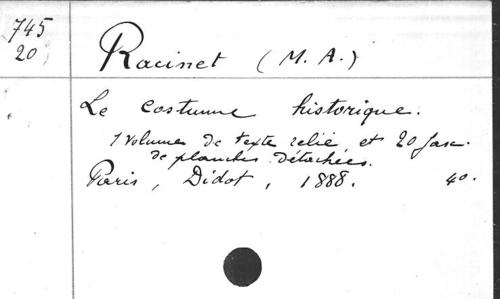 745
20
Racinet (M. A.)
Le costume historique.
1 volume de texte relié, et 20 fasc.
de planches détachées.
Paris, Didot, 1888. 4o.